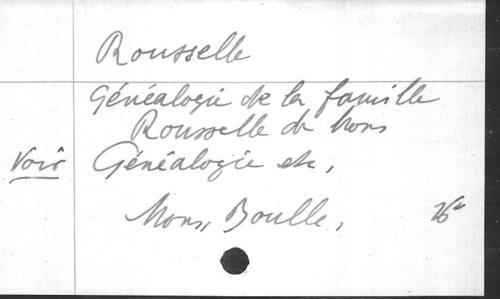 Rousselle
Généalogie de la famille
Rousselle de Mons
Voir Généalogie etc,
Mons, Boulle,